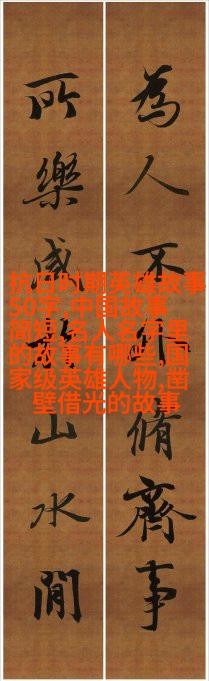 為人不外脩齊事
所樂咸山水間
抗日时期英雄故事
50字,中国故事
简短,名人名字里
的故事有哪些,国
家级英雄人物,凿
壁借光的故事